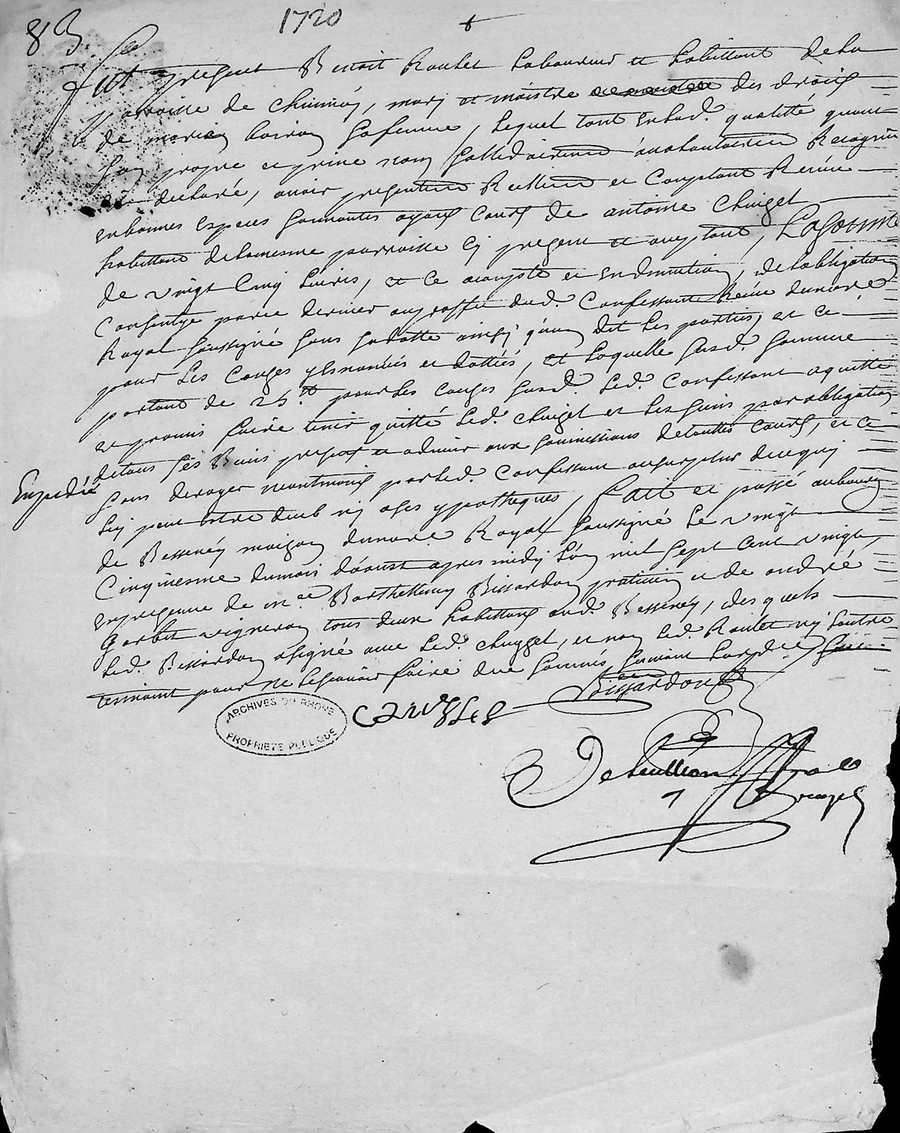 83.
1720
Fut present Benoit Roulet Laboureur et habittant de la
parroisse de chiminés, mary et maistre des droits
de marie boiron sa femme, lequel tant en lad. qualitté quen
son propre et privé nom sollidairement a vollontairement Recogneu
et declaré, avoir presentement Reellement et Comptant Receu
en bonnes especes sonnantes ayant cours de antoine chuzet
habittant de la mesme parroisse cy present et aceptant, La somme
de vingt Cinq Livres, et ce a compte et en diminution, de lobligation
Consentye par ce dernier au proffit dud. Confessant Receue du notaire
Royal soussigné sous sa datte ainsy quon dit Les parties, et ce
pour Les Causes y esnoncées et dattées, de laquelle susd. somme
portant de 25 lt pour les causes susd. Led. Confessant a quitté
et promis faire tenir quitté Led. chuzet et Les siens par obligation
de tous ses Biens presents et advenir aux soumissions de touttes Cours, et ce
Expedié
sans deroger neantmoins par led. Confessant au surplus de ce quy
luy peut estre deub ny a ses ypotheques, fait et passé au bourg
de Bessenay maison du notaire Royal soussigné Le vingt
Cinquiesme du mois d'aoust apres midy Lan mil sept cent vingt,
en presence de me Barthellemy Bissardon praticien et de andré
Gorbit vigneron tous deux habittans aud. Bessenay, desquels
Led. Bissardon a signé avec Led. chuzet, et non Led. Roulet ny Lautre
tesmoint pour ne le sçavoir faire de ce sommés suivant Lordce
Bissardon
ARCHIVES DU RHONE
PROPRIETE PUBLIQUE